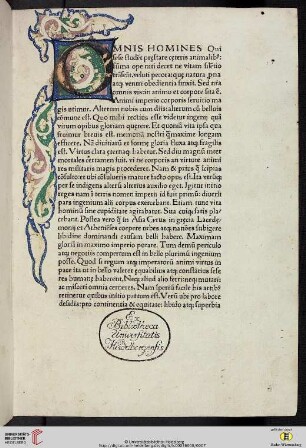 OMNIS HOMINES Qui
sese studēt prestare ceteris animalib⁹
suma ope niti decet ne vitam silētio
trāseāt, veluti pecora que natura prona
atq; ventri obedientia finxit. Sed nr̄a
omnis vis in animo et corpore sita ē.
Animi imperio corporis seruitio ma
gis utimur. Alterum nobis cum diis alterum cū beluis
cōmune est. Quo mihi rectius esse videtur ingenii q̄
virium opibus gloriam querere. Et quoniā vita ipsa qua
fruimur breuis est memoriā nostri q̄maxime longam
efficere. Nā diuitiarū et forme gloria fluxa atq; fragilis
est. Virtus clara eternaq; habetur. Sed diu magnū inter
mortales certamen fuit. vi ne corporis an virtute animi
res militaris magis procederet. Nam & prius q̄ incipias
cōsulto et ubi cōsulueris mature facto opus est. Ita vtrūq;
per se indigens alterū alterius auxilio eget. Igitur initio
reges nam in terris nomen imperii id fuit primū diuersi
pars ingenium alii corpus exercebant. Etiam tunc vita
hominū sine cupiditate agitabatur. Sua cuiq; satis pla
cebant. Postea vero q̄ in Asia Cyrus in grecia Lacede
monii et Athenieses cepere urbes atq; nationes subigere
libidinem dominandi causam belli habere. Maximam
gloriā in maximo imperio putare. Tum demū periculo
atq; negotiis compertum est in bello plurimū ingenium
posse. Quod si regum atq; imperatorū animi virtus in
pace ita ut in bello valeret equabilius atq; constātius sese
res humane haberent. Neq; aliud alio ferri neq; mutari
ac misceri omnia cerneres. Nam imperiū facile his artib⁹
retinetur quibus initio partum est. Verū ubi pro labore
desidia: pro continentia & equitate libido atq; superbia
Ex
Bibliotheca
Universitatis
Heidelbergensis